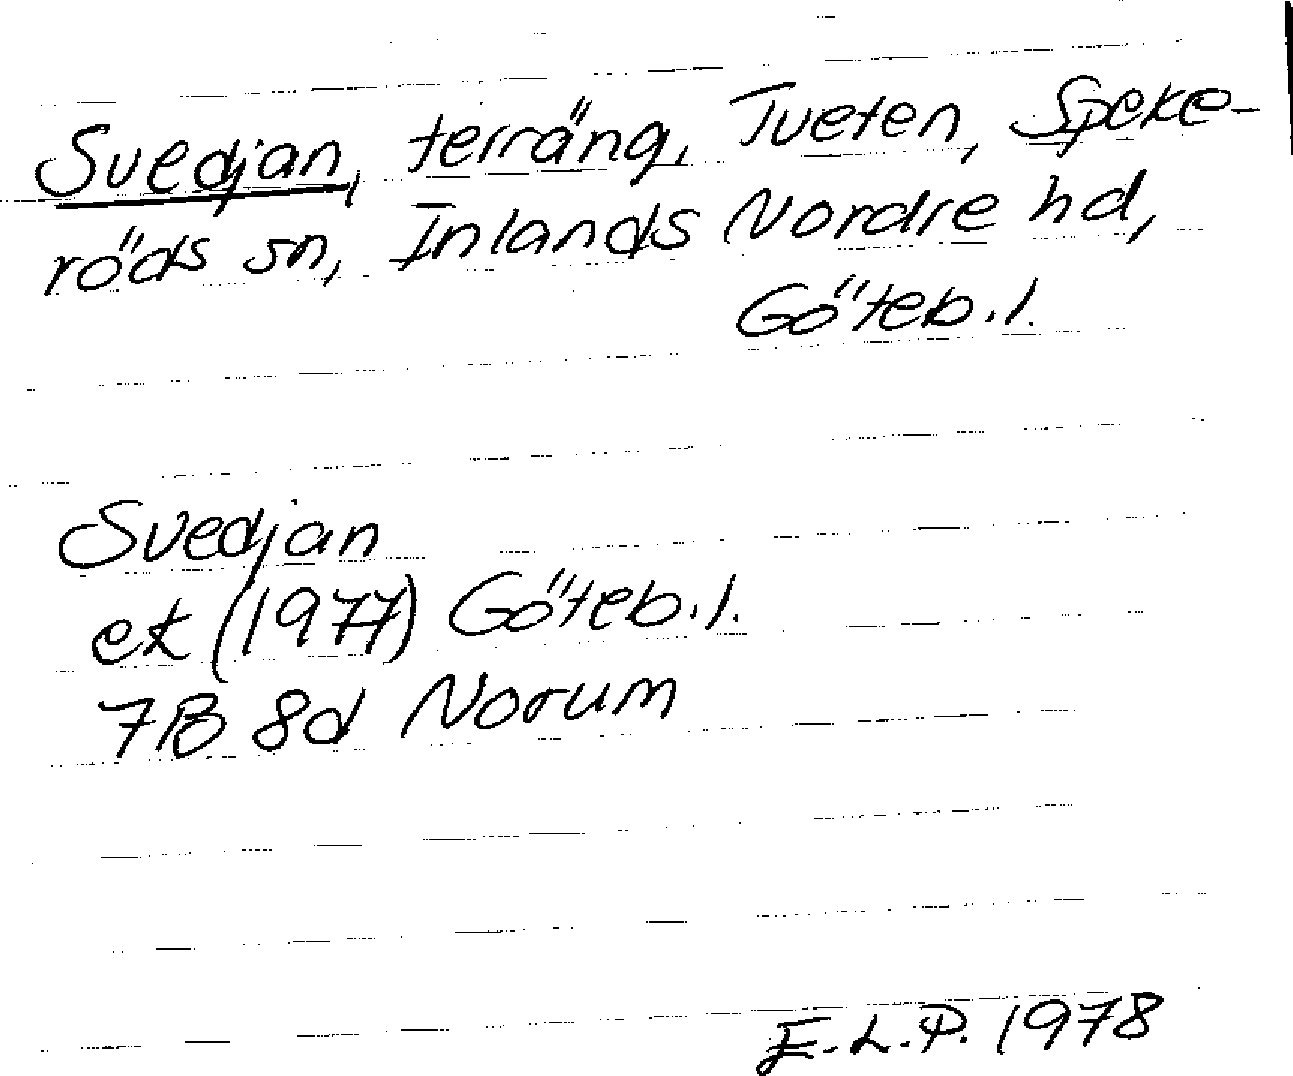 Svedjan, terräng, Tveten, Speke-
röds sn, Inlands Nordre hd,
Göteb.l.
Svedjan
ek (1977) Göteb.l.
7B 8d Norum
E.L.P. 1978